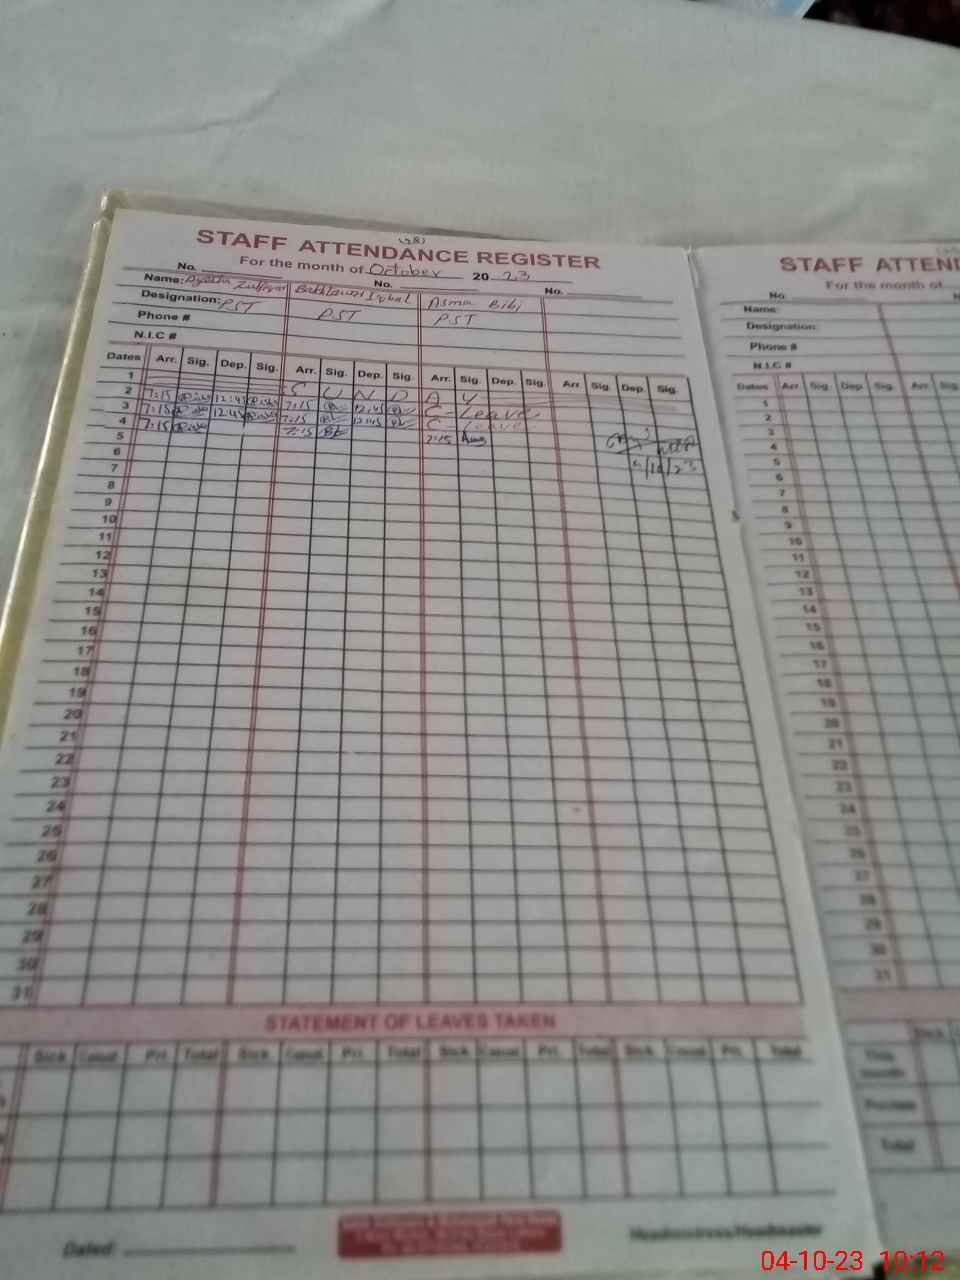 (38)
STAFF ATTENDANCE REGISTER
For the month of October 2023
No. No. No.
Name: Ayesha Iqbal Asma Bibi
Designation: PST PST PST
Phone #
N.I.C #
Dates Arr. Sig. Dep. Sig. Arr. Sig. Dep. Sig. Arr. Sig. Dep. Sig. Arr. Sig. Dep. Sig.
1 S U N D A Y
2 7:15 12:45 7:15 12:45 C-Leave
3 7:15 12:45 7:15 12:45 C-Leave
4 7:15 7:15 7:15
5
6
7
8
9
10
11
12
13
14
15
16
17
18
19
20
21
22
23
24
25
26
27
28
29
30
31
STATEMENT OF LEAVES TAKEN
Sick. Casual. Pri. Total Sick. Casual. Pri. Total Sick. Casual. Pri. Total Sick. Casual. Pri. Total
Dated:
Headmistress/Headmaster
STAFF ATTEND
For the month of
No.
Name:
Designation:
Phone #
N.I.C #
Dates Arr. Sig. Dep. Sig. Arr. Sig.
1
2
3
4
5
6
7
8
9
10
11
12
13
14
15
16
17
18
19
20
21
22
23
24
25
26
27
28
29
30
31
Sick.
This month
Previous
Total
04-10-23 10:12